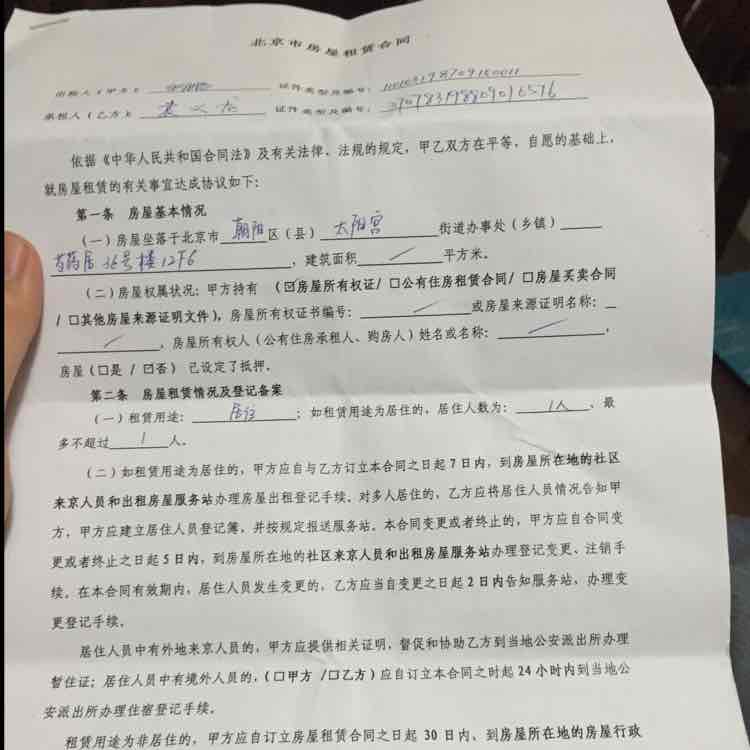 北京市房屋租赁合同
出租人（甲方）： 证件类型及编号：
承租人（乙方）： 证件类型及编号：
依据《中华人民共和国合同法》及有关法律、法规的规定，甲乙双方在平等、自愿的基础上，
就房屋租赁的有关事宜达成协议如下：
第一条 房屋基本情况
（一）房屋坐落于北京市 朝阳 区（县） 太阳宫 街道办事处（乡镇）
芍药居 36号楼 1206 ，建筑面积 / 平方米。
（二）房屋权属状况：甲方持有 （☑房屋所有权证/ □公有住房租赁合同/ □房屋买卖合同
/ □其他房屋来源证明文件），房屋所有权证书编号： / 或房屋来源证明名称：
/ ，房屋所有权人（公有住房承租人、购房人）姓名或名称： / ，
房屋（□是 / ☑否） 已设定了抵押。
第二条 房屋租赁情况及登记备案
（一）租赁用途： 居住 ；如租赁用途为居住的，居住人数为： 1人 ，最
多不超过 1 人。
（二）如租赁用途为居住的，甲方应自与乙方订立本合同之日起 7 日内，到房屋所在地的社区
来京人员和出租房屋服务站办理房屋出租登记手续。对多人居住的，乙方应将居住人员情况告知甲
方，甲方应建立居住人员登记簿，并按规定报送服务站。本合同变更或者终止的，甲方应自合同变
更或者终止之日起 5 日内，到房屋所在地的社区来京人员和出租房屋服务站办理登记变更、注销手
续。在本合同有效期内，居住人员发生变更的，乙方应当自变更之日起 2 日内告知服务站，办理变
更登记手续。
居住人员中有外地来京人员的，甲方应提供相关证明，督促和协助乙方到当地公安派出所办理
暂住证；居住人员中有境外人员的，（□甲方 /□乙方）应自订立本合同之时起 24 小时内到当地公
安派出所办理住宿登记手续。
租赁用途为非居住的，甲方应自订立房屋租赁合同之日起 30 日内，到房屋所在地的房屋行政